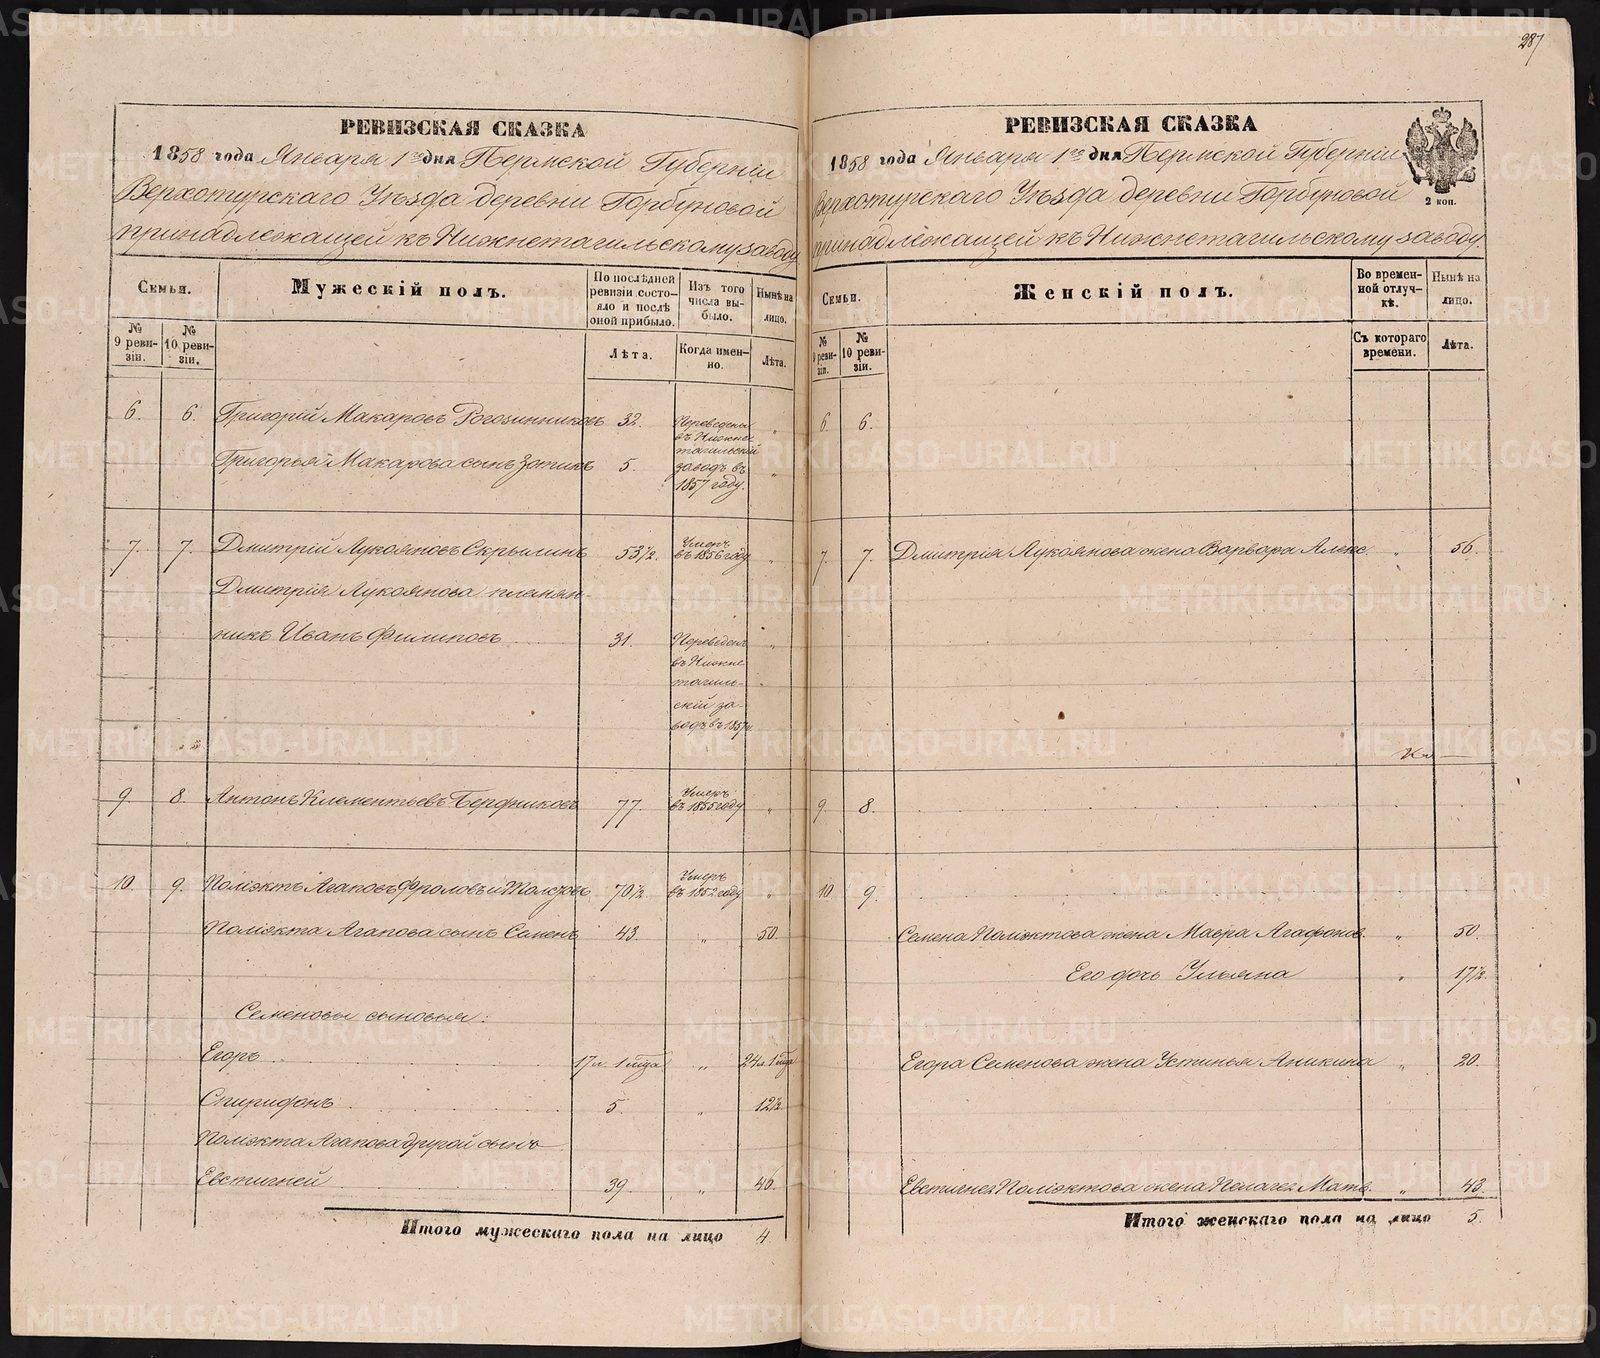 287
РЕВИЗСКАЯ СКАЗКА
1858 года Января 1го дня Пермской Губерніи
Верхотурскаго Уѣзда деревни Горбуновой
принадлежащей къ Нижнетагильскому заводу
Семьи.
Мужескій полъ.
По послѣдней ревизіи состояло и послѣ оной прибыло.
Изъ того числа выбыло.
Нынѣ на лицо.
№ 9 ревизіи.
№ 10 ревизіи.
Лѣта.
Когда именно.
Лѣта.
6. 6. Григорій Макаровъ Рогозинниковъ 32. Переведены „
въ Нижне
тагильскій
Григорья Макарова сынъ Зотикъ 5. заводъ въ „
1857 году.
7. 7. Дмитрій Лукояновъ Скрылинъ 53½. Умеръ въ 1856 году „
Дмитрія Лукоянова племян-
никъ Иванъ Филиповъ 31. Переведенъ „
въ Нижне
тагиль-
скій за-
водъ въ 1857 г.
9. 8. Антонъ Клементьевъ Бердниковъ 77. Умеръ въ 1855 году „
10. 9. Поліэктъ Агаповъ Фроловъ и Ползовъ 70½ Умеръ въ 1852 году „
Поліэкта Агапова сынъ Семенъ 43. „ 50.
Семеновы сыновья:
Егоръ 17 л 1 мца „ 24 л 1 мца
Спиридонъ 5. „ 12½
Поліэкта Агапова другой сынъ
Евстигней 39 „ 46.
Итого мужескаго пола на лицо 4.
РЕВИЗСКАЯ СКАЗКА
1858 года Января 1го дня Пермской Губерніи
Верхотурскаго Уѣзда деревни Горбуновой
принадлежащей къ Нижнетагильскому заводу
2 коп.
Семьи.
Женскій полъ.
Во временной отлучкѣ.
Нынѣ на лицо.
№ 9 ревизіи.
№ 10 ревизіи.
Съ котораго времени.
Лѣта.
6. 6.
7. 7. Дмитрія Лукоянова жена Варвара Алекс. „ 56.
9. 8.
10. 9.
Семена Поліэктова жена Мавра Агафонов. „ 50.
Его дочь Ульяна „ 17½.
Егора Семенова жена Устинья Аникина „ 20.
Евстигнея Поліэктова жена Пелагея Матв. „ 43.
Итого женскаго пола на лицо 5.
METRIKI.GASO-URAL.RU